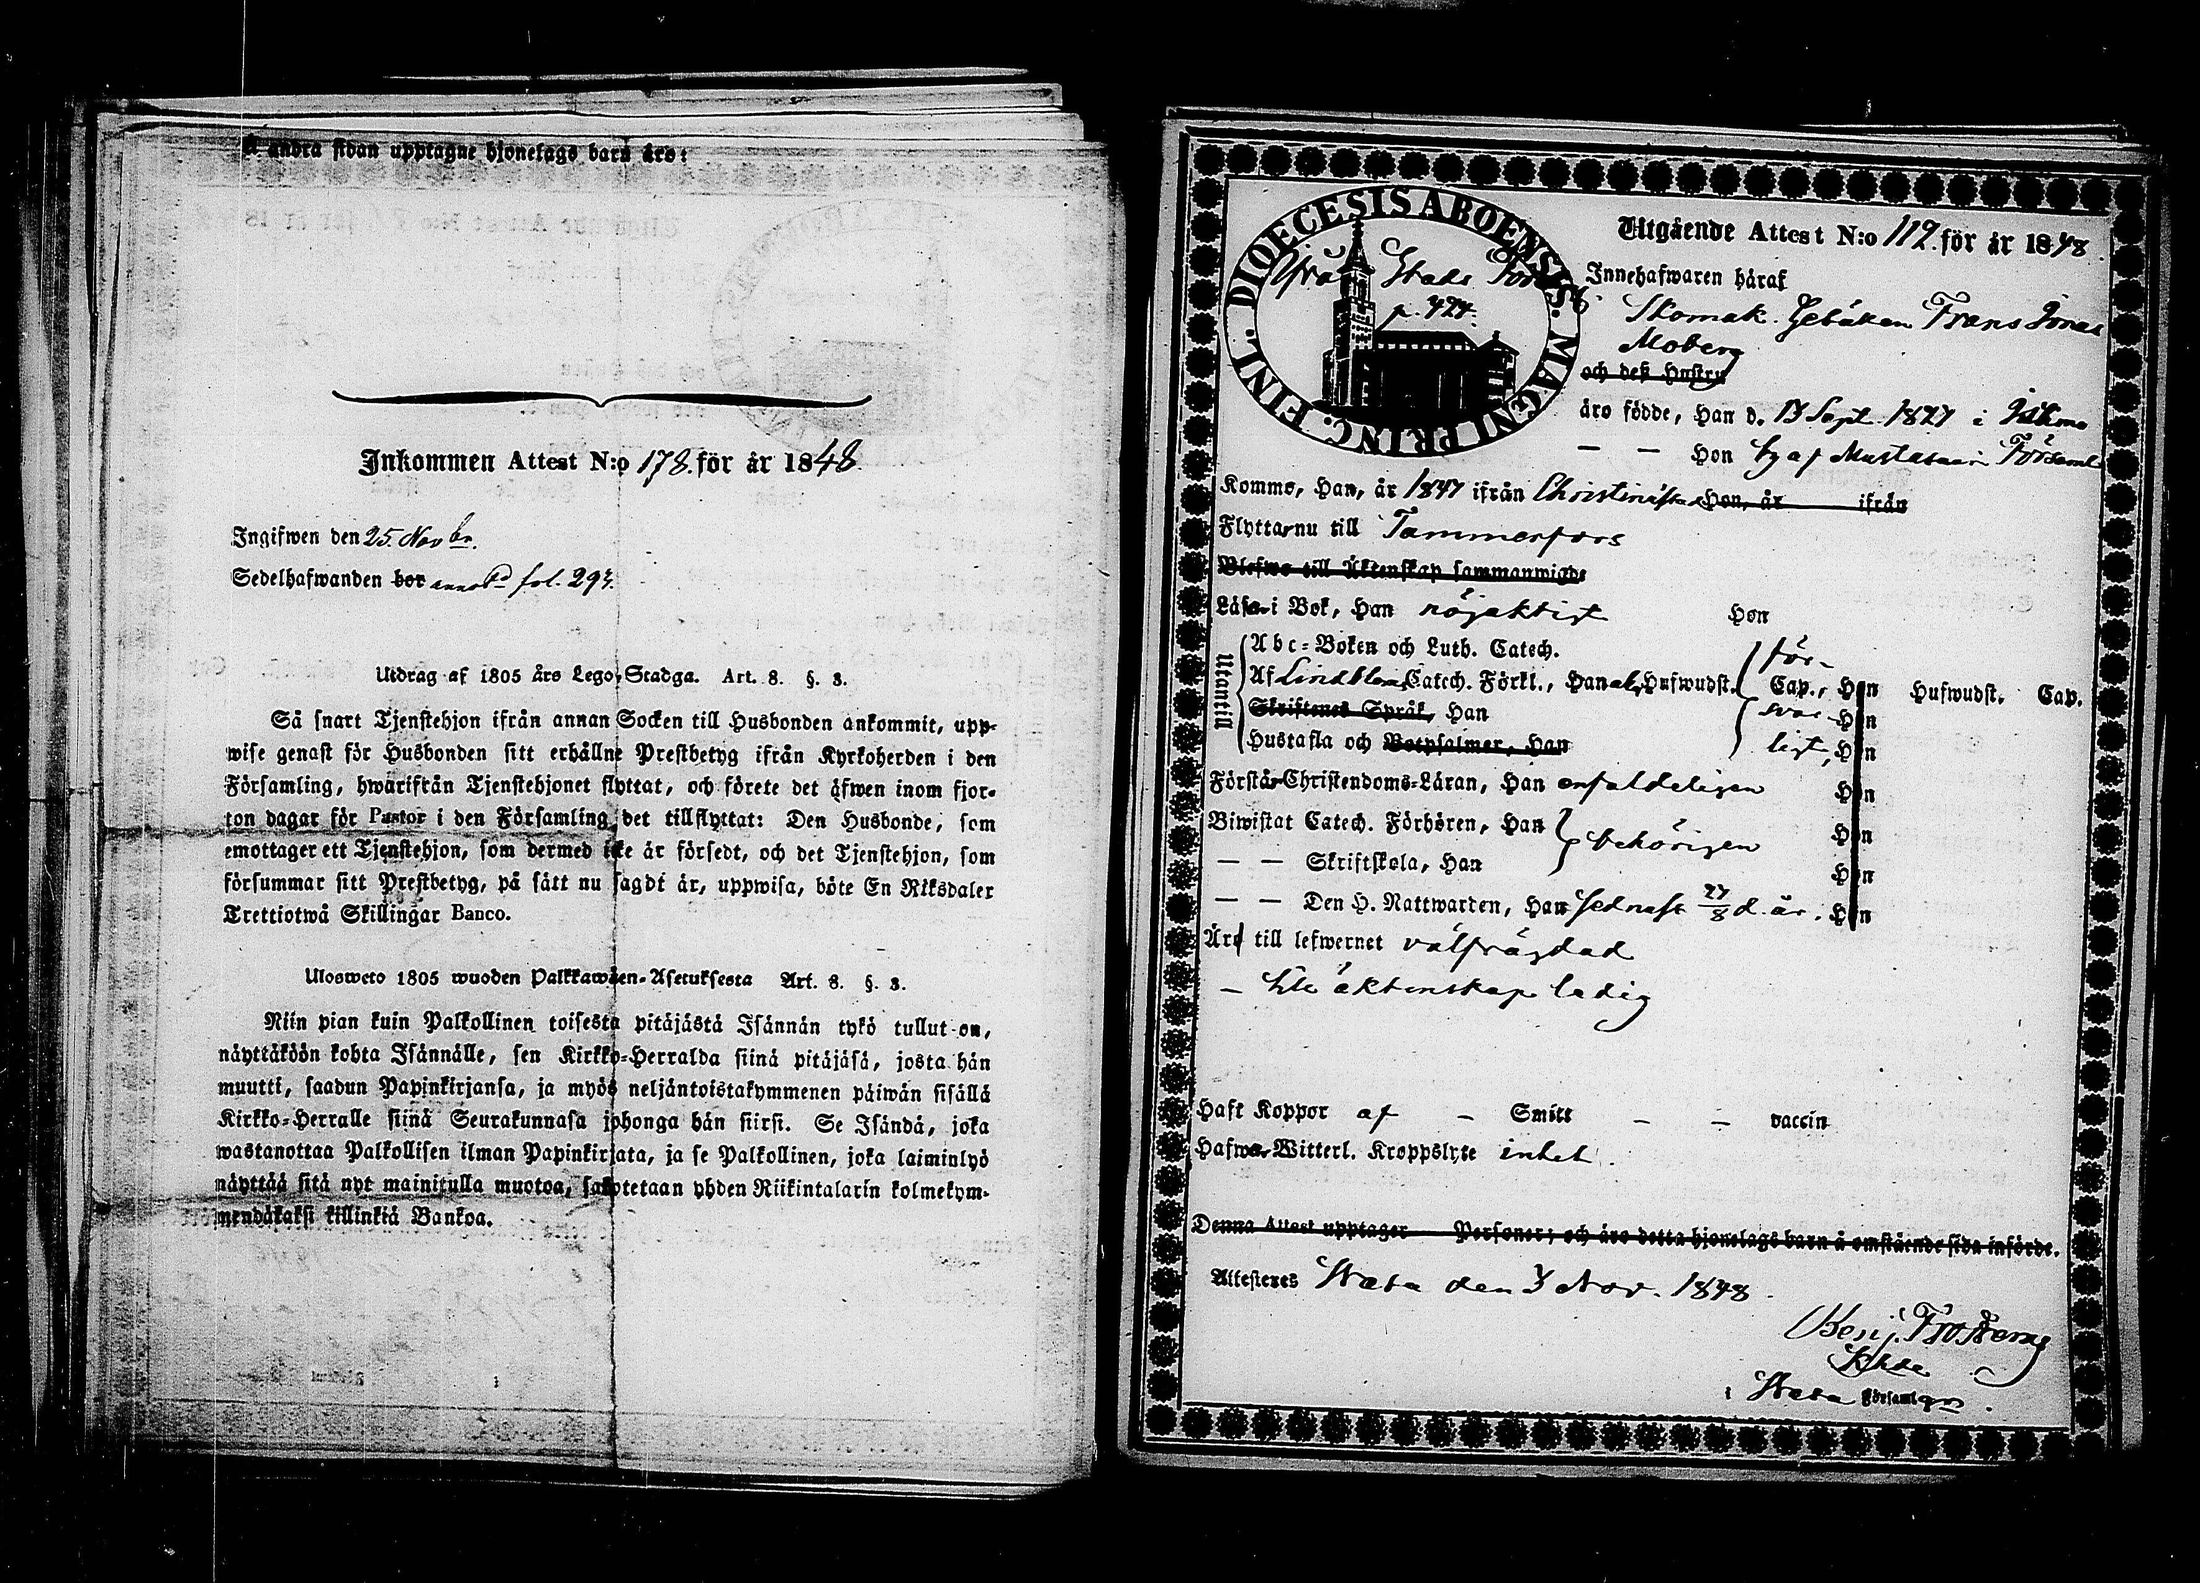 Å andra sidan upptagne hjonelags barn äro:
Inkommen Attest N:o 178. för år 1848.
Ingifwen den 25. Novbr.
Sedelhafwanden bor annot. fol. 297.
Utdrag af 1805 års Lego-Stadga. Art. 8. §. 3.
Så snart Tjenstehjon ifrån annan Socken till Husbonden ankommit, upp-
wise genast för Husbonden sitt erhållne Prestbetyg ifrån Kyrkoherden i den
Församling, hwarifrån Tjenstehjonet flyttat, och förete det äfwen inom fjor-
ton dagar för Pastor i den Församling det tillflyttat: Den Husbonde, som
emottager ett Tjenstehjon, som dermed icke är försedt, och det Tjenstehjon, som
försummar sitt Prestbetyg, på sätt nu sagdt är, uppwisa, böte En Riksdaler
Trettiotwå Skillingar Banco.
Ulosweto 1805 wuoden Palkkawäen-Asetuksesta Art. 8. §. 3.
Niin pian kuin Palkollinen toisesta pitäjästä Isännän tykö tullut on,
näyttäköön kohta Isännälle, sen Kirkko-Herralda siinä pitäjäsä, josta hän
muutti, saadun Papinkirjansa, ja myös neljäntoistakymmenen päiwän sisällä
Kirkko-Herralle siinä Seurakunnasa johonga hän siirsi. Se Isändä, joka
wastanottaa Palkollisen ilman Papinkirjata, ja se Palkollinen, joka laiminlyö
näyttää sitä nyt mainitulla muotoa, sakotetaan yhden Riikintalarin kolmekym-
mendäkaksi killinkiä Bankoa.
DIOECESIS ABOENSIS. MAGNI PRINC. FINL.
från Stads
p. 427.
Utgående Attest N:o 112. för år 1848
Innehafwaren häraf
Skomak. Gesällen Frans Jonas
Moberg
och deß Hustru
äro födde, Han d. 13 Sept. 1827 i
— — Hon by af Mustasaari Församl
Komme, Han, år 1847 ifrån Christinestad Hon, år ifrån
Flytta nu till Tammerfors
Blefwo till Äktenskap sammanwigde
Läsa i Bok, Han nöjaktigt Hon
Utantill
Abc-Boken och Luth. Catech. för-
Af Lindbloms Catech. Förkl., Han al. Hufwudst. Cap., Hon Hufwudst. Cap.
Skriftenes Språk, Han svar Hon
Hustafla och Botpsalmer, Han ligt, Hon
Förstå Christendoms-Läran, Han enfaldeligen Hon
Biwistat Catech. Förhören, Han behörigen Hon
— — Skriftskola, Han Hon
— — Den H. Nattwarden, Han sednast 27/8 d. år. Hon
Äro till lefwernet välfrägdad
– till äktenskap ledig
Haft Koppor af – Smitt – – vaccin
Hafwa Witterl. Kroppslyte intet.
Denna Attest upptager Personer; och äro detta hjonelags barn å omstående sida införde.
Attesteres Wasa den 3 Nov. 1848.
Benj. Frosterus
Khde
i Wasa Församlgn.